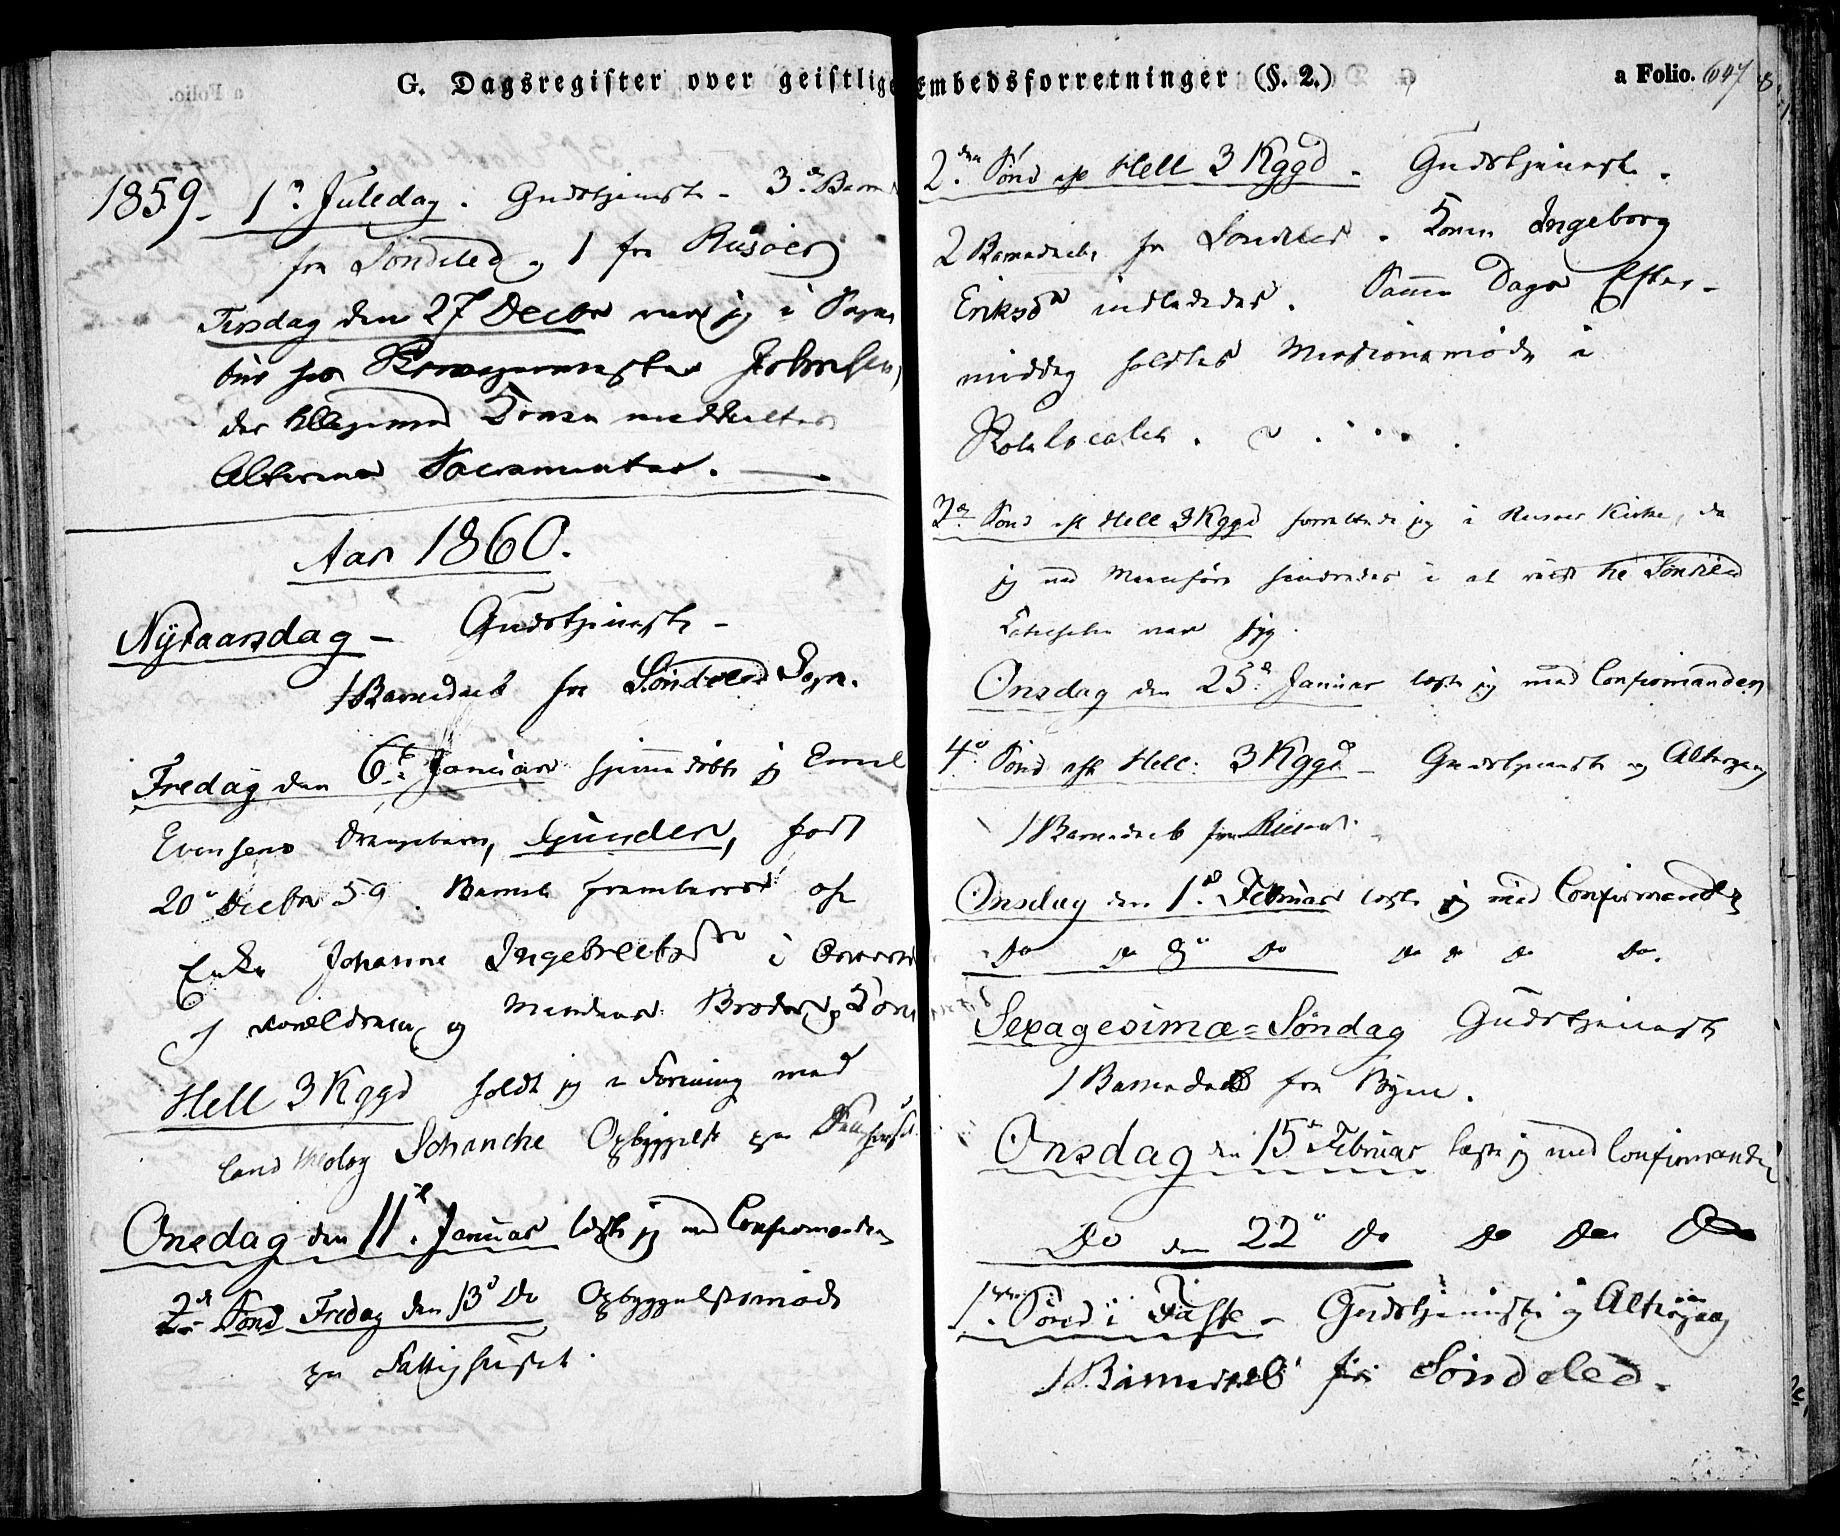 G. Dagsregister over geistlige Embedsforretninger (§. 2.)
a Folio. 647
1859. 1ste Juledag. Gudstjeneste - 3de Barn
fra Söndeled og 1 fra Risöer
Tirsdag den 27 Decbr var jeg i
hos Johnsen,
der Konen meddeeltes
Alterens Sacramenter.
Aar 1860.
Nÿtaarsdag - Gudstjeneste -
1 Barnedaab fra Söndeled Sogn.
Fredag den 6te Januar hjemmedöbte jeg Emil
Evensens Drengebarn, Gunder, fodt
20de Decbr 59. Barnet frembaaret af
Enke Johanne Ingebrectsdtr i
og Broder og Kone
Hell 3 Kggd holdt jeg i Forening med
Cand theolog Schanche Opbyggelse paa
Onsdag den 11te Januar læste jeg med Confirmanden
2de Sönd Fredag den 13de Do Opbyggelsesmöde
paa Fattighuset.
2den Sönd eft Hell 3 Kggd - Gudstjeneste.
2 Barnedaab fra Söndeled. Konen Ingeborg
Eriksdtr indlededes. Samme Dags Efter-
middag holdtes Missionsmöde i
localet.
3de Sönd eft Hell 3 Kggd forrettede jeg i Risoer Kirke, da
jeg ved hindredes i at reise til Söndeled
var syg.
Onsdag den 25de Januar læste jeg med Confirmanden
4de Sönd eft Hell. 3 Kggd - Gudstjeneste og Altergang
1 Barnedaab fra Risoer.
Onsdag den 1ste Februar læste jeg med Confirmanden
Do De 8de Do Do Do Do Do.
Sexagesimæ=Söndag Gudstjeneste
1 Barnedaab fra Byen.
Onsdag den 15de Februar læste jeg med Confirmanden
Do den 22de Do Do Do Do
1ste Sönd i Faste - Gudstjeneste og Altergang
1 Barnedaab fra Söndeled.